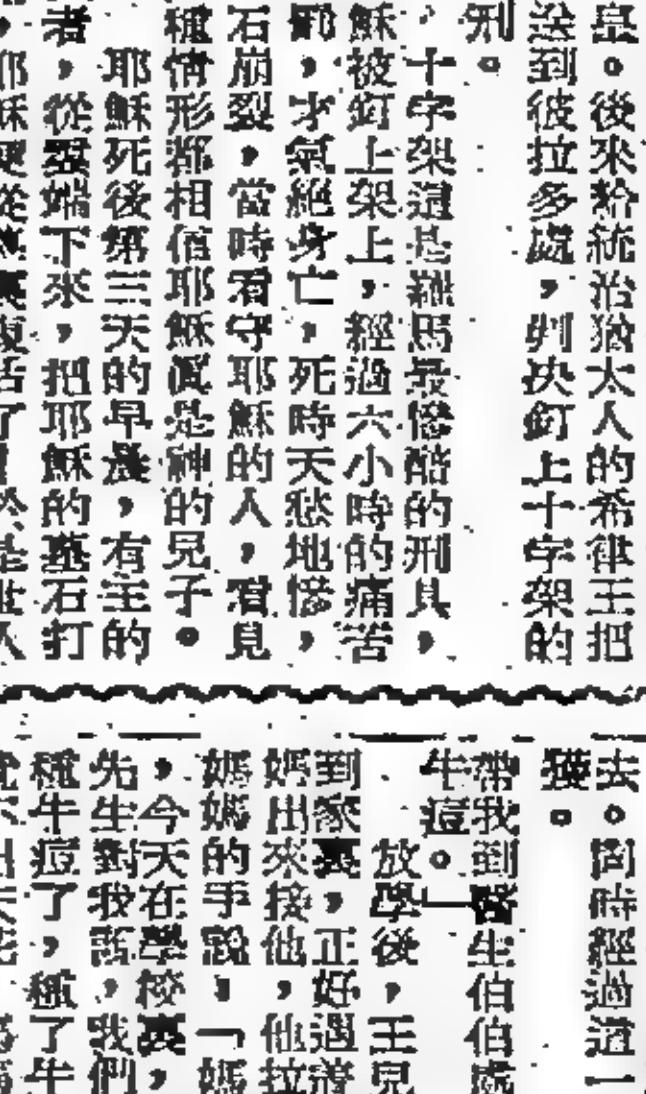 皇。後來給統治猶太人的希律王把
送到彼拉多處，判決釘上十字架的
刑。
十字架這是羅馬最慘酷的刑具，
穌被釘上架上，經過六小時的痛苦
，才氣絕身亡，死時天愁地慘，
石崩裂，當時看守耶穌的人，看見
種情形都相信耶穌眞是神的兒子。
耶穌死後第三天的早晨，有主的
者，從雲端下來，把耶穌的墓石打
去。同時經過這一
獲。
帶我到醫生伯伯處
牛痘。」
放學後，王兒
到家裏，正好遇着
媽出來接他，他拉
媽媽的手說，「媽
，今天在學校裏，
先生對我話，我們
種牛痘了，種了牛